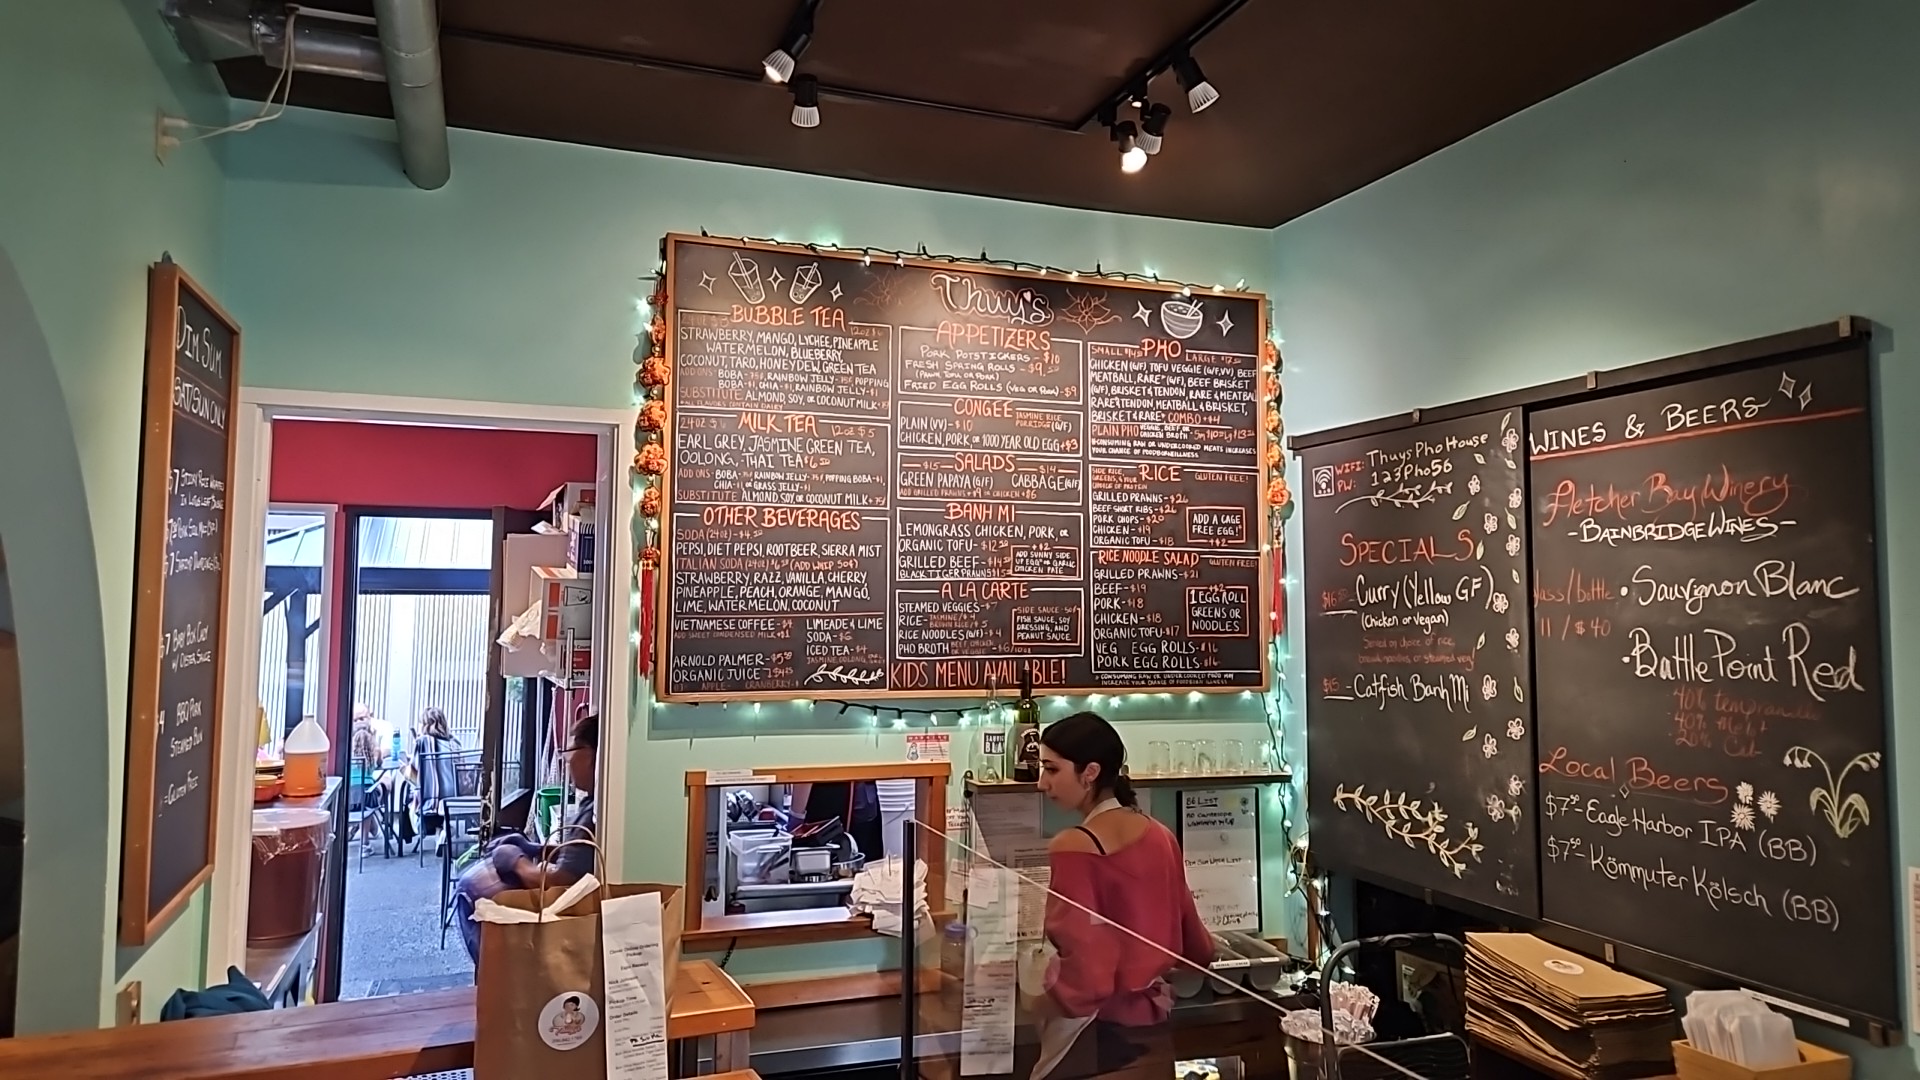 DIM SUM
SAT/SUN ONLY
$7 STICKY RICE WRAPPED
IN LOTUS LEAF
$7 BABY BOK CHOY
W/ OYSTER SAUCE
BBQ PORK
STEAMED BUN
=GLUTEN FREE
Thuy's
BUBBLE TEA
12OZ $6
STRAWBERRY, MANGO, LYCHEE, PINEAPPLE
WATERMELON, BLUEBERRY,
COCONUT, TARO, HONEYDEW, GREEN TEA
ADD ONS: BOBA -75¢, RAINBOW JELLY -75¢ POPPING
BOBA-$1, CHIA-$1, RAINBOW JELLY-$1
SUBSTITUTE ALMOND, SOY, OR COCONUT MILK
ALL FLAVORS CONTAIN DAIRY
MILK TEA
24OZ $6
12OZ $5
EARL GREY, JASMINE GREEN TEA,
OOLONG, THAI TEA
ADD ONS: BOBA -75¢ RAINBOW JELLY -75¢ POPPING BOBA-$1,
CHIA-$1 OR GRASS JELLY-$1
SUBSTITUTE ALMOND, SOY, OR COCONUT MILK+.75¢
OTHER BEVERAGES
SODA (24OZ) -$4.50
PEPSI, DIET PEPSI, ROOTBEER, SIERRA MIST
ITALIAN SODA (24OZ) (ADD WHIP 50¢)
STRAWBERRY, RAZZ, VANILLA, CHERRY,
PINEAPPLE, PEACH, ORANGE, MANGO,
LIME, WATERMELON, COCONUT
VIETNAMESE COFFEE-$4
ADD SWEET CONDENSED MILK +$1
ARNOLD PALMER-$5.50
ORGANIC JUICE
APPLE CRANBERRY
LIMEADE & LIME
SODA-$6
ICED TEA-$4
JASMINE, OOLONG,
APPETIZERS
PORK POTSTICKERS-$10
FRESH SPRING ROLLS-$9.50
(PRAWN, TOFU OR PORK)
FRIED EGG ROLLS (VEG OR PORK)-$9
CONGEE
JASMINE RICE
PORRIDGE (G/F)
PLAIN (VV)-$10
CHICKEN, PORK, OR 1000 YEAR OLD EGG+$3
SALADS
$15 $14
GREEN PAPAYA (G/F) CABBAGE (G/F)
ADD GRILLED PRAWNS +$9 OR CHICKEN +$6
BANH MI
LEMONGRASS CHICKEN, PORK, OR
ORGANIC TOFU-$12.50
GRILLED BEEF-$14.50
BLACK TIGER PRAWNS
+$2
ADD SUNNY SIDE
UP EGG* OR GARLIC
CHICKEN PATE
A LA CARTE
STEAMED VEGGIES-$7
RICE- JASMINE/$4
BROWN RICE/$5
RICE NOODLES (G/F)-$4
PHO BROTH
SIDE SAUCE 50¢
FISH SAUCE, SOY
DRESSING, AND
PEANUT SAUCE
KIDS MENU AVAILABLE!
PHO
SMALL
LARGE
CHICKEN (G/F) TOFU VEGGIE (G/F, VV), BEEF
MEATBALL, RARE* (G/F), BEEF BRISKET
(G/F), BRISKET & TENDON, RARE & MEATBALL
RARE* TENDON, MEATBALL & BRISKET,
BRISKET & RARE* COMBO +$4
PLAIN PHO VEGGIE, BEEF, OR
CHICKEN BROTH
*CONSUMING RAW OR UNDERCOOKED MEATS INCREASES
YOUR CHANCE OF FOODBORNE ILLNESS
RICE
GLUTEN FREE!
GRILLED PRAWNS-$26
BEEF SHORT RIBS-$26
PORK CHOPS-$20
CHICKEN-$19
ORGANIC TOFU-$18
ADD A CAGE
FREE EGG!*
+$2
RICE NOODLE SALAD
GLUTEN FREE!
GRILLED PRAWNS-$21
BEEF-$19
PORK-$18
CHICKEN-$18
ORGANIC TOFU-$17
VEG EGG ROLLS-$16
PORK EGG ROLLS-$16
+$2
1 EGG ROLL
GREENS OR
NOODLES
WIFI: ThuysPhoHouse
PW: 123Pho56
SPECIALS
Curry (Yellow GF)
(Chicken or Vegan)
Served w/ choice of rice,
$15 - Catfish Banh Mi
WINES & BEERS
Fletcher Bay Winery
-BAINBRIDGE WINES-
glass/bottle
11 / $40
• Sauvignon Blanc
• Battle Point Red
40% tempranillo
40% Merlot
20% Cab
Local Beers
$7.50-Eagle Harbor IPA (BB)
$7.50-Kömmuter Kölsch (BB)
86 LIST
NO Cantelope